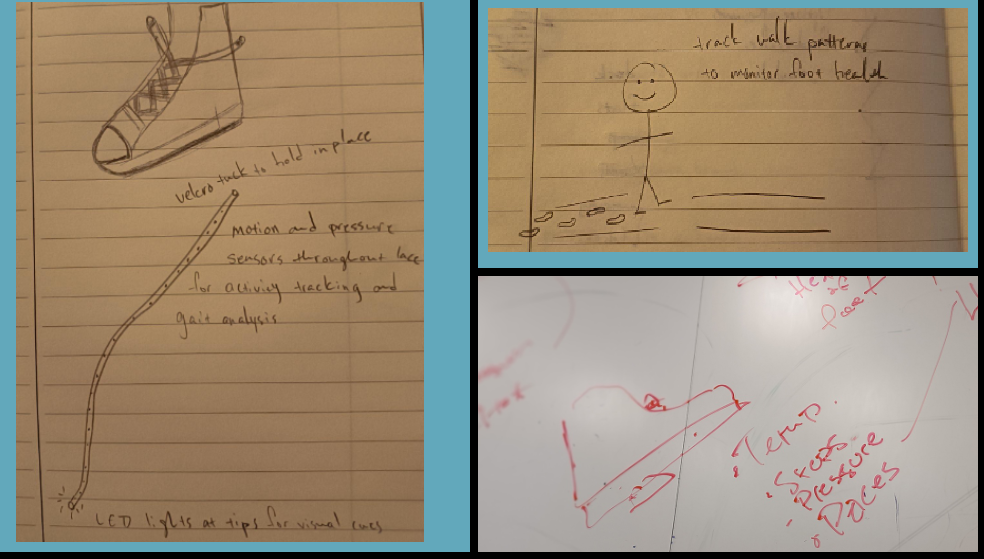 velcro tuck to hold in place
motion and pressure
sensors throughout lace
for activity tracking and
gait analysis
LED lights at tips for visual cues
track walk patterns
to monitor foot health
Temp.
Steps
Pressure
Paces